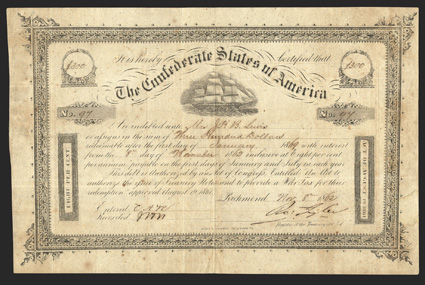 It is hereby Certified that
$300 $300
The Confederate States of America
No. 97 No. 97
Are indebted unto Mrs
or assigns in the sum of Three Hundred Dollars
redeemable after the first day of January with interest
from the 8 day of inclusive at Eight per cent
per annum, payable on the first day of January and July in each year
This debt is authorized by an Act of Congress, Entitled An Act to
authorize the issue of Treasury Notes and to provide a War Tax for their
redemption approved August 19, 1861
EIGHT PER CENT EIGHT PER CENT
Richmond Nov 8 1862
Entered
Recorded